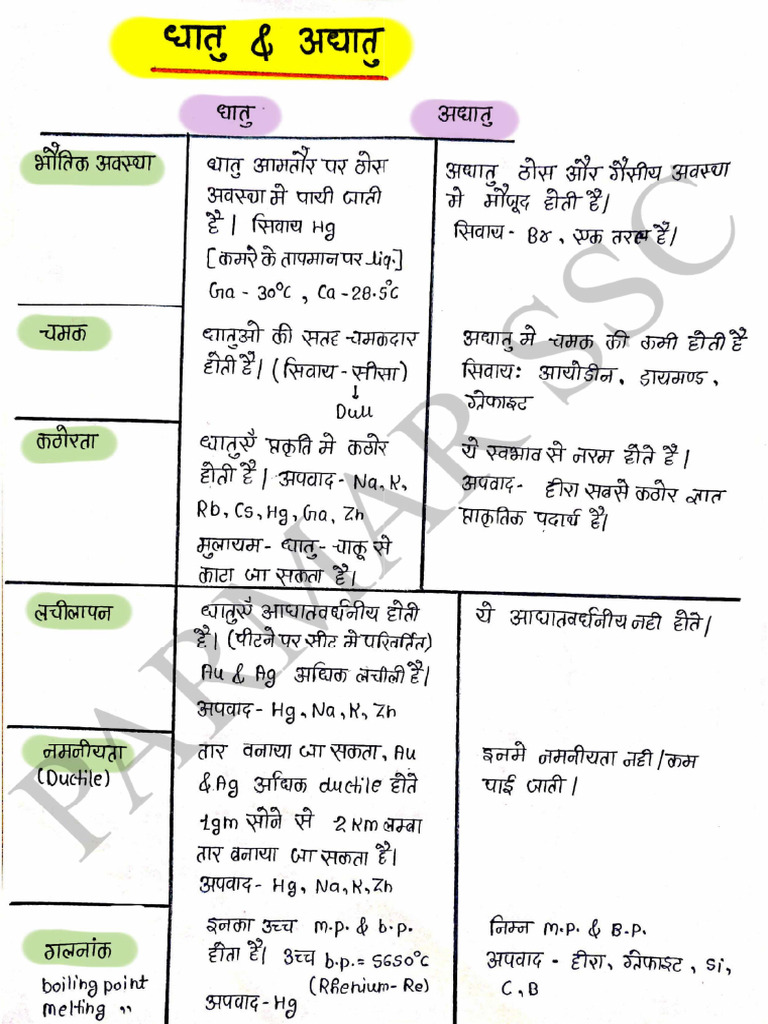 धातु & अधातु
धातु
अधातु
भौतिक अवस्था
धातु आमतौर पर ठोस
अवस्था मे पायी जाती
है। सिवाय Hg
[कमरे के तापमान पर liq.]
Ga - 30°C, Ca - 28.5°C
अधातु ठोस और गैसीय अवस्था
मे मौजूद होती है।
सिवाय - Br, एक तरल है।
चमक
धातुओ की सतह चमकदार
होती है। (सिवाय - सीसा)
↓
Dull
अधातु मे चमक की कमी होती है
सिवाय: आयोडीन, डायमण्ड,
ग्रेफाइट
कठोरता
धातुएँ प्रकृति मे कठोर
होती है। अपवाद - Na, K,
Rb, Cs, Hg, Ga, Zn
मुलायम - धातु - चाकू से
काटा जा सकता है।
ये स्वभाव से नरम होते है।
अपवाद - हीरा सबसे कठोर ज्ञात
प्राकृतिक पदार्थ है।
लचीलापन
धातुएँ आघातवर्धनीय होती
है। (पीटने पर सीट मे परिवर्तित)
Au & Ag अधिक लचीली है।
अपवाद - Hg, Na, K, Zn
ये आघातवर्धनीय नही होते।
नमनीयता
(Ductile)
तार बनाया जा सकता, Au
& Ag अधिक ductile होते
1gm सोने से 2 Km लम्बा
तार बनाया जा सकता है।
अपवाद - Hg, Na, K, Zn
इनमे नमनीयता नही/कम
पाई जाती।
गलनांक
boiling point
melting ,,
इनका उच्च m.p. & b.p.
होता है। उच्च b.p. = 5650°C
(Rhenium-Re)
अपवाद - Hg
निम्न m.p. & B.P.
अपवाद - हीरा, ग्रेफाइट, Si,
C, B
PARMAR SSC